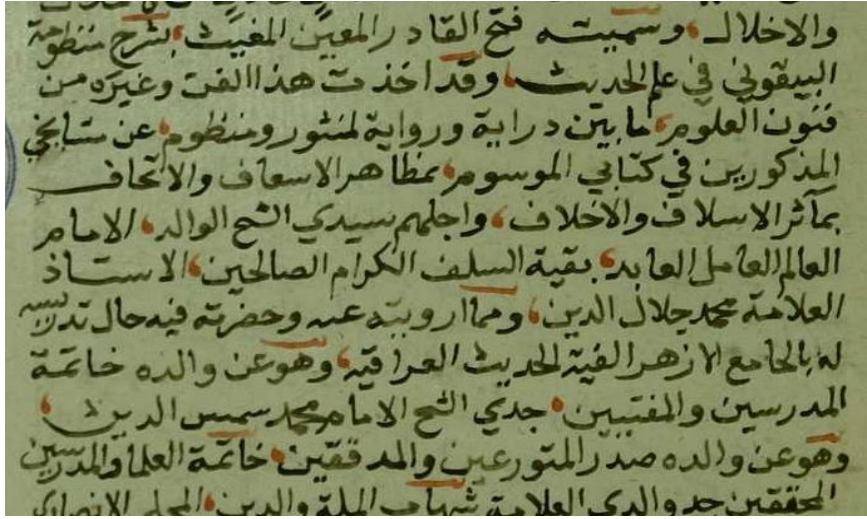 والاخلال، وسميته فتح القادر المعين المغيث، بشرح منظومة
البيقوني في علم الحديث، وقد اخذت هذا الفن وغيره من
فنون العلوم، ما بين دراية ورواية لمنثور ومنظوم، عن مشايخي
المذكورين في كتابي الموسوم، بمظاهر الاسعاف والاتحاف
بمآثر الاسلاف والاخلاف، واجلهم سيدي الشيخ الوالد، الامام
العالم العامل العابد، بقية السلف الكرام الصالحين، الاستاذ
العلامة محمد جلال الدين، ومما ارويته عنه وحضرته فيه حال تدريسه
له بالجامع الازهر الفية الحديث العراقية، وهو عن والده خاتمة
المدرسين والمفتيين، جدي الشيخ الامام محمد شمس الدين،
وهو عن والده صدر المتورعين والمدققين، خاتمة العلما والمدرسين
المحققين جد والدي العلامة شهاب الملة والدين، المحلى الانصاري